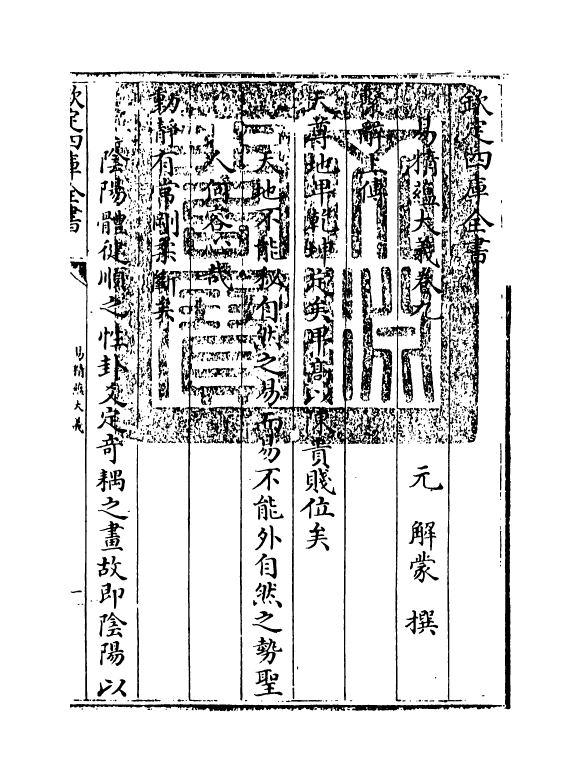 欽定四庫全書
易精蘊大義卷九
元 解蒙 撰
繫辭上傳
天尊地卑乾坤定矣卑髙以陳貴賤位矣
天地不能秘自然之易而易不能外自然之勢聖
人何容心哉
動静有常剛柔斷矣
陰陽體健順之性卦爻定奇耦之畫故即陰陽以
欽定四庫全書
易精蘊大義
一